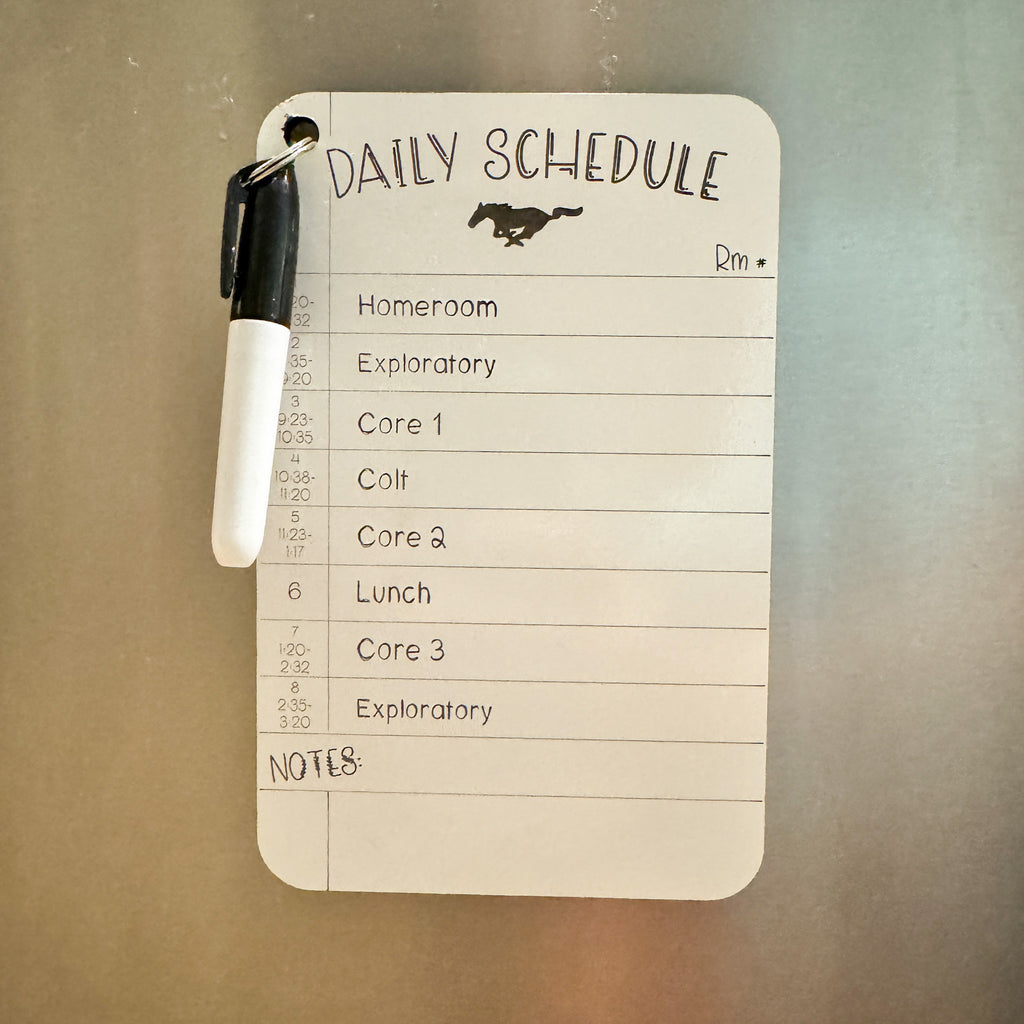 DAILY SCHEDULE
Rm #
20-
32
Homeroom
2
:35-
9:20
Exploratory
3
9:23-
10:35
Core 1
4
10:38-
11:20
Colt
5
11:23-
1:17
Core 2
6
Lunch
7
1:20-
2:32
Core 3
8
2:35-
3:20
Exploratory
NOTES: